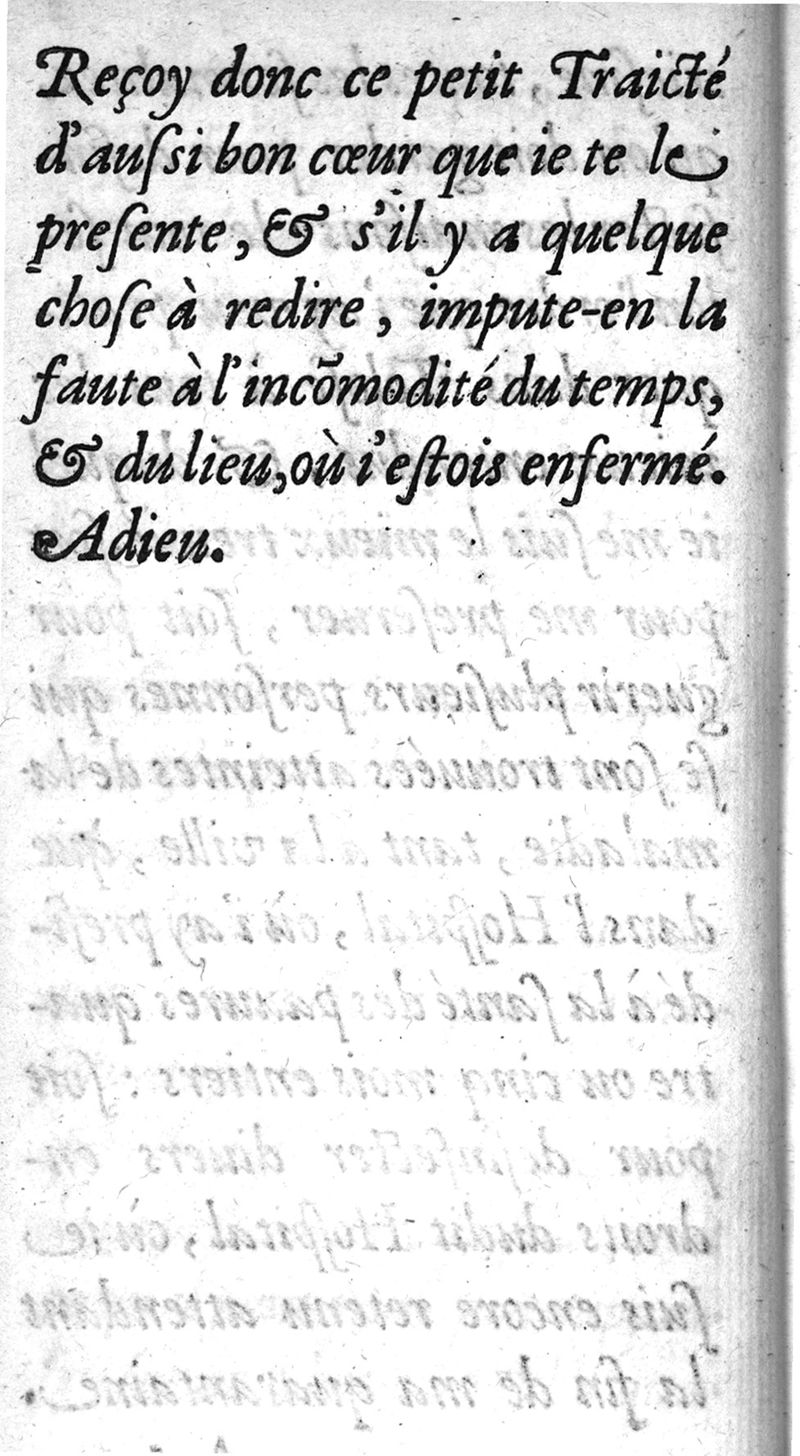 Reçoy donc ce petit Traicté
d'auſsi bon cœur que ie te le
preſente, & s'il y a quelque
choſe à redire, impute-en la
faute à l'incõmodité du temps,
& du lieu, où i'eſtois enfermé.
Adieu.